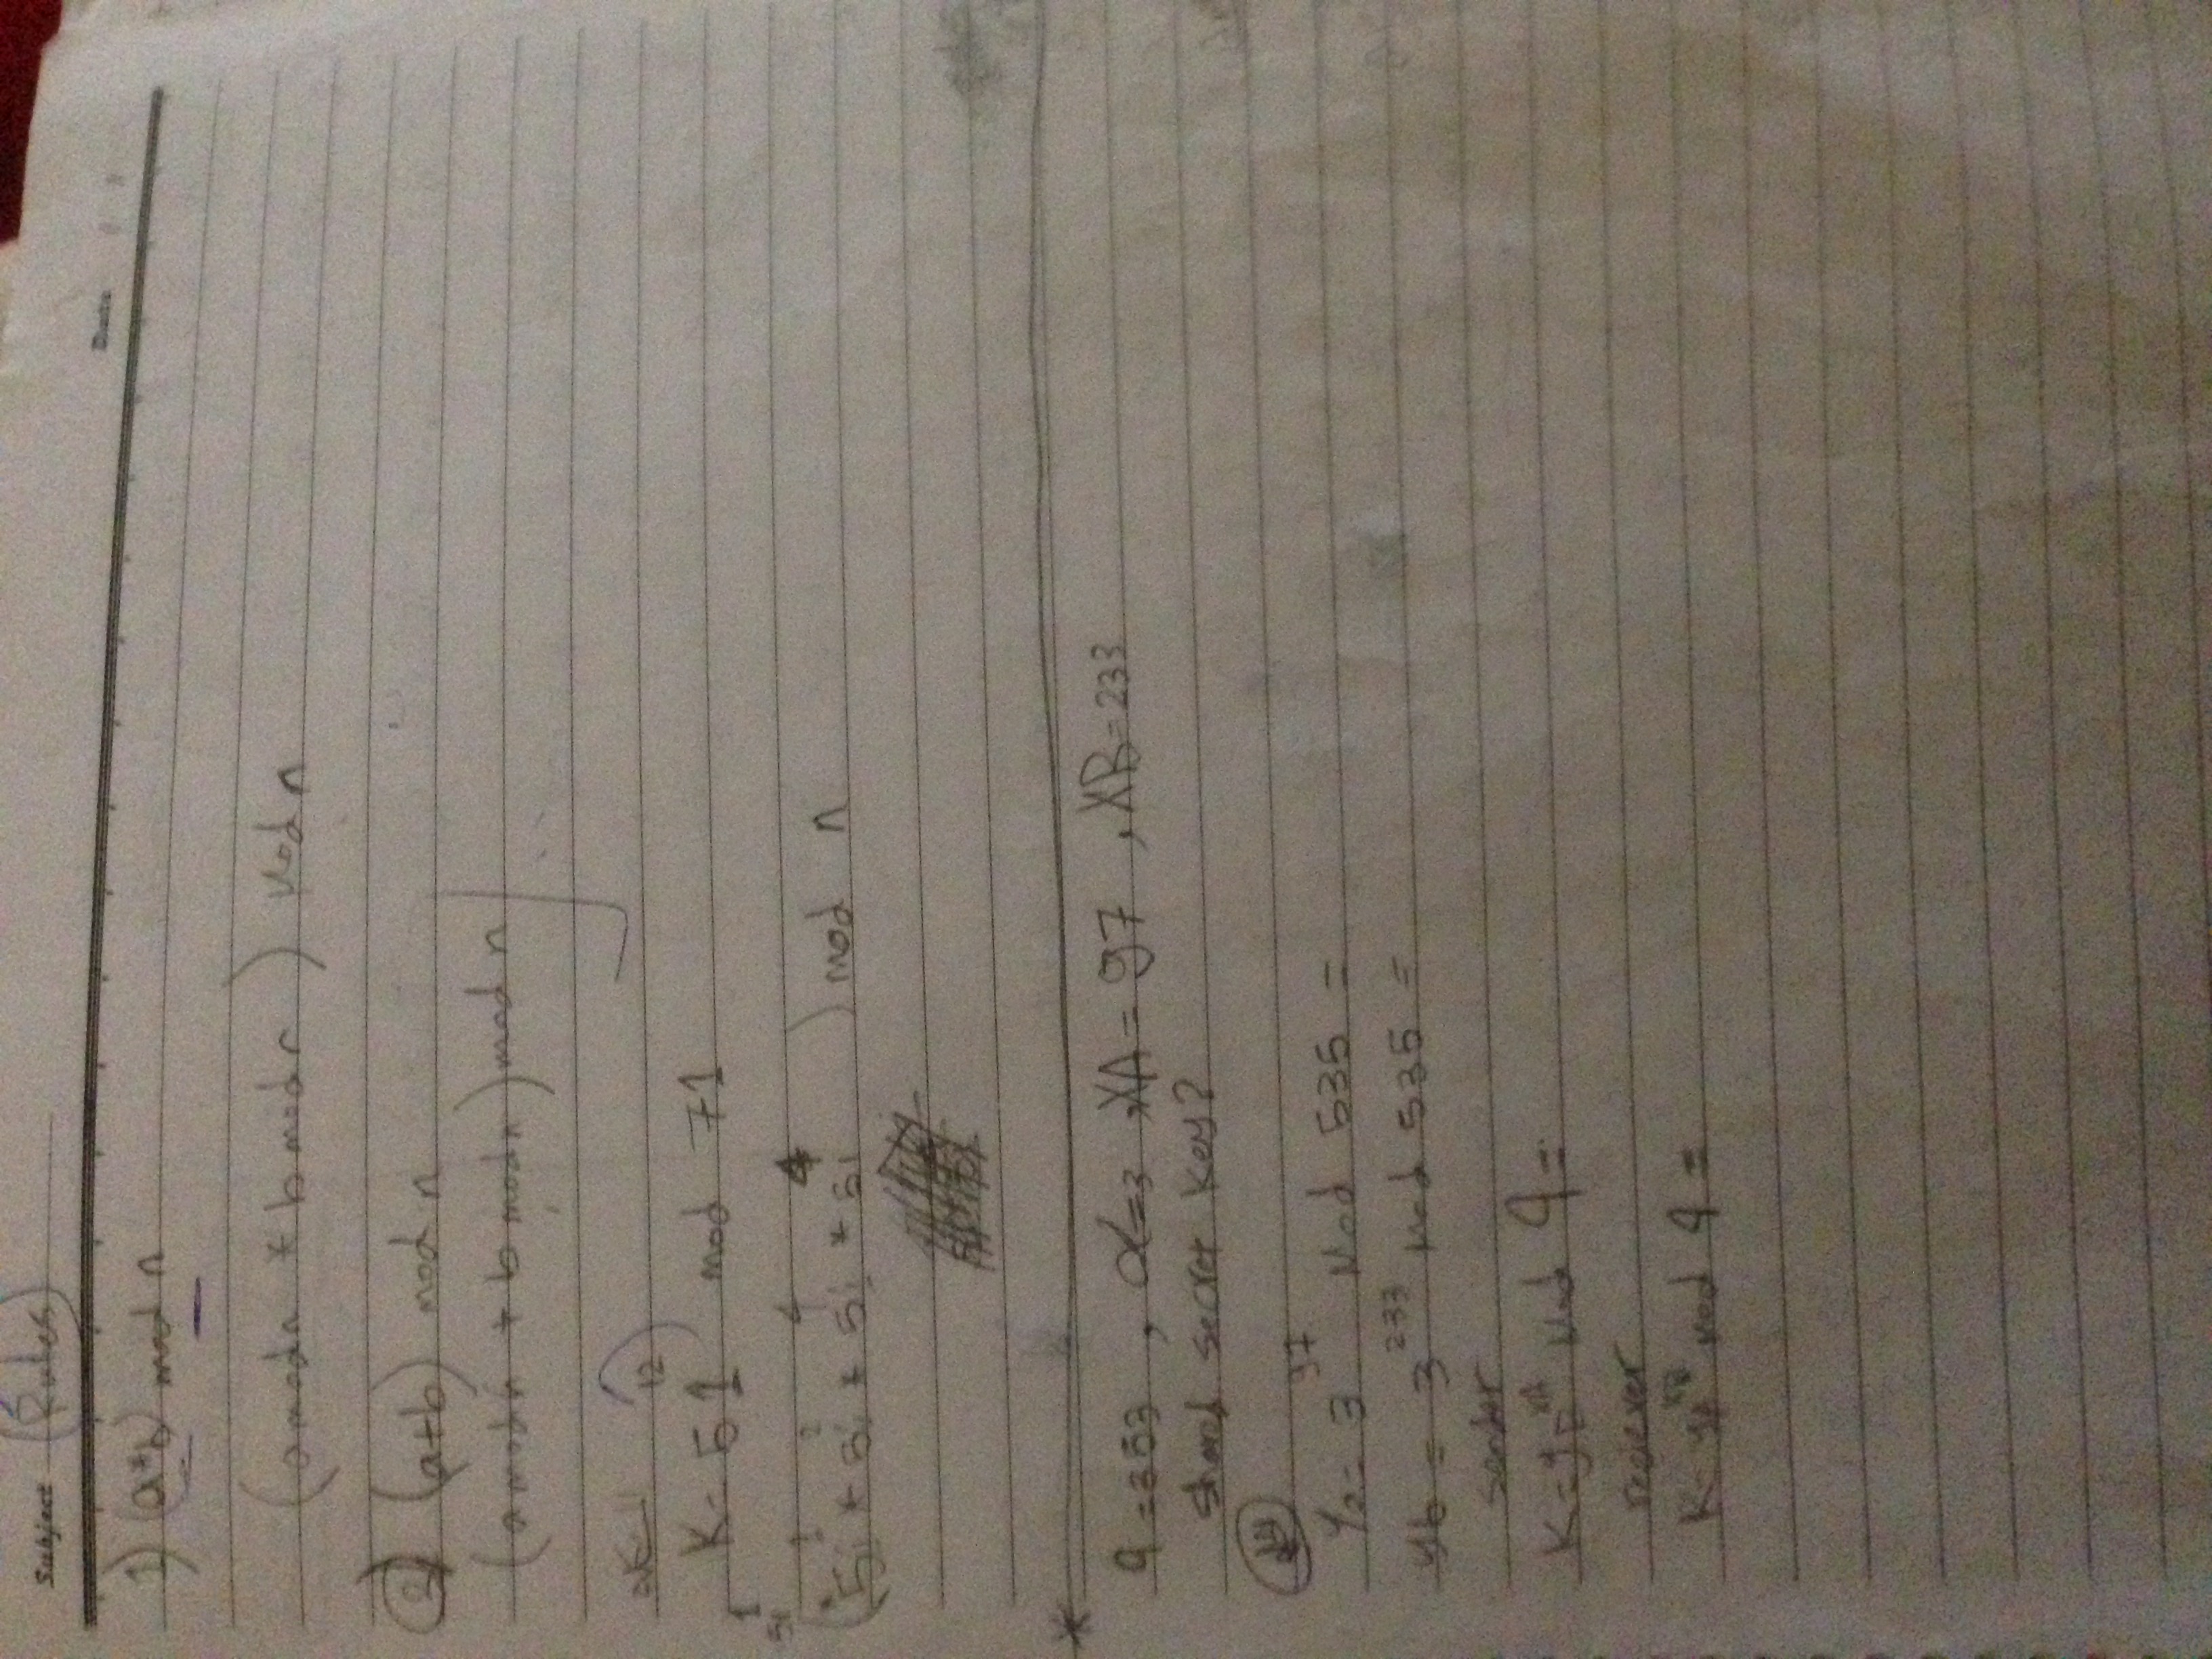 Subject Rules
Date
1) (a*b) mod n
(a mod n * b mod n) Mod n
2) (a+b) mod n
(a mod n + b mod n) mod n
12
K= 51 mod 71
1
51
1 2 4 4
(51 * 51 * 51 * 51 ) mod n
*
q=353 , α=3 , XA = 97 , XB=233
shared secret key?
97
Ya= 3 Mod 535 =
yb = 3^233 Mod 535 =
sender
K=yB^XA Mod q=
reciever
K= yA^XB Mod q =